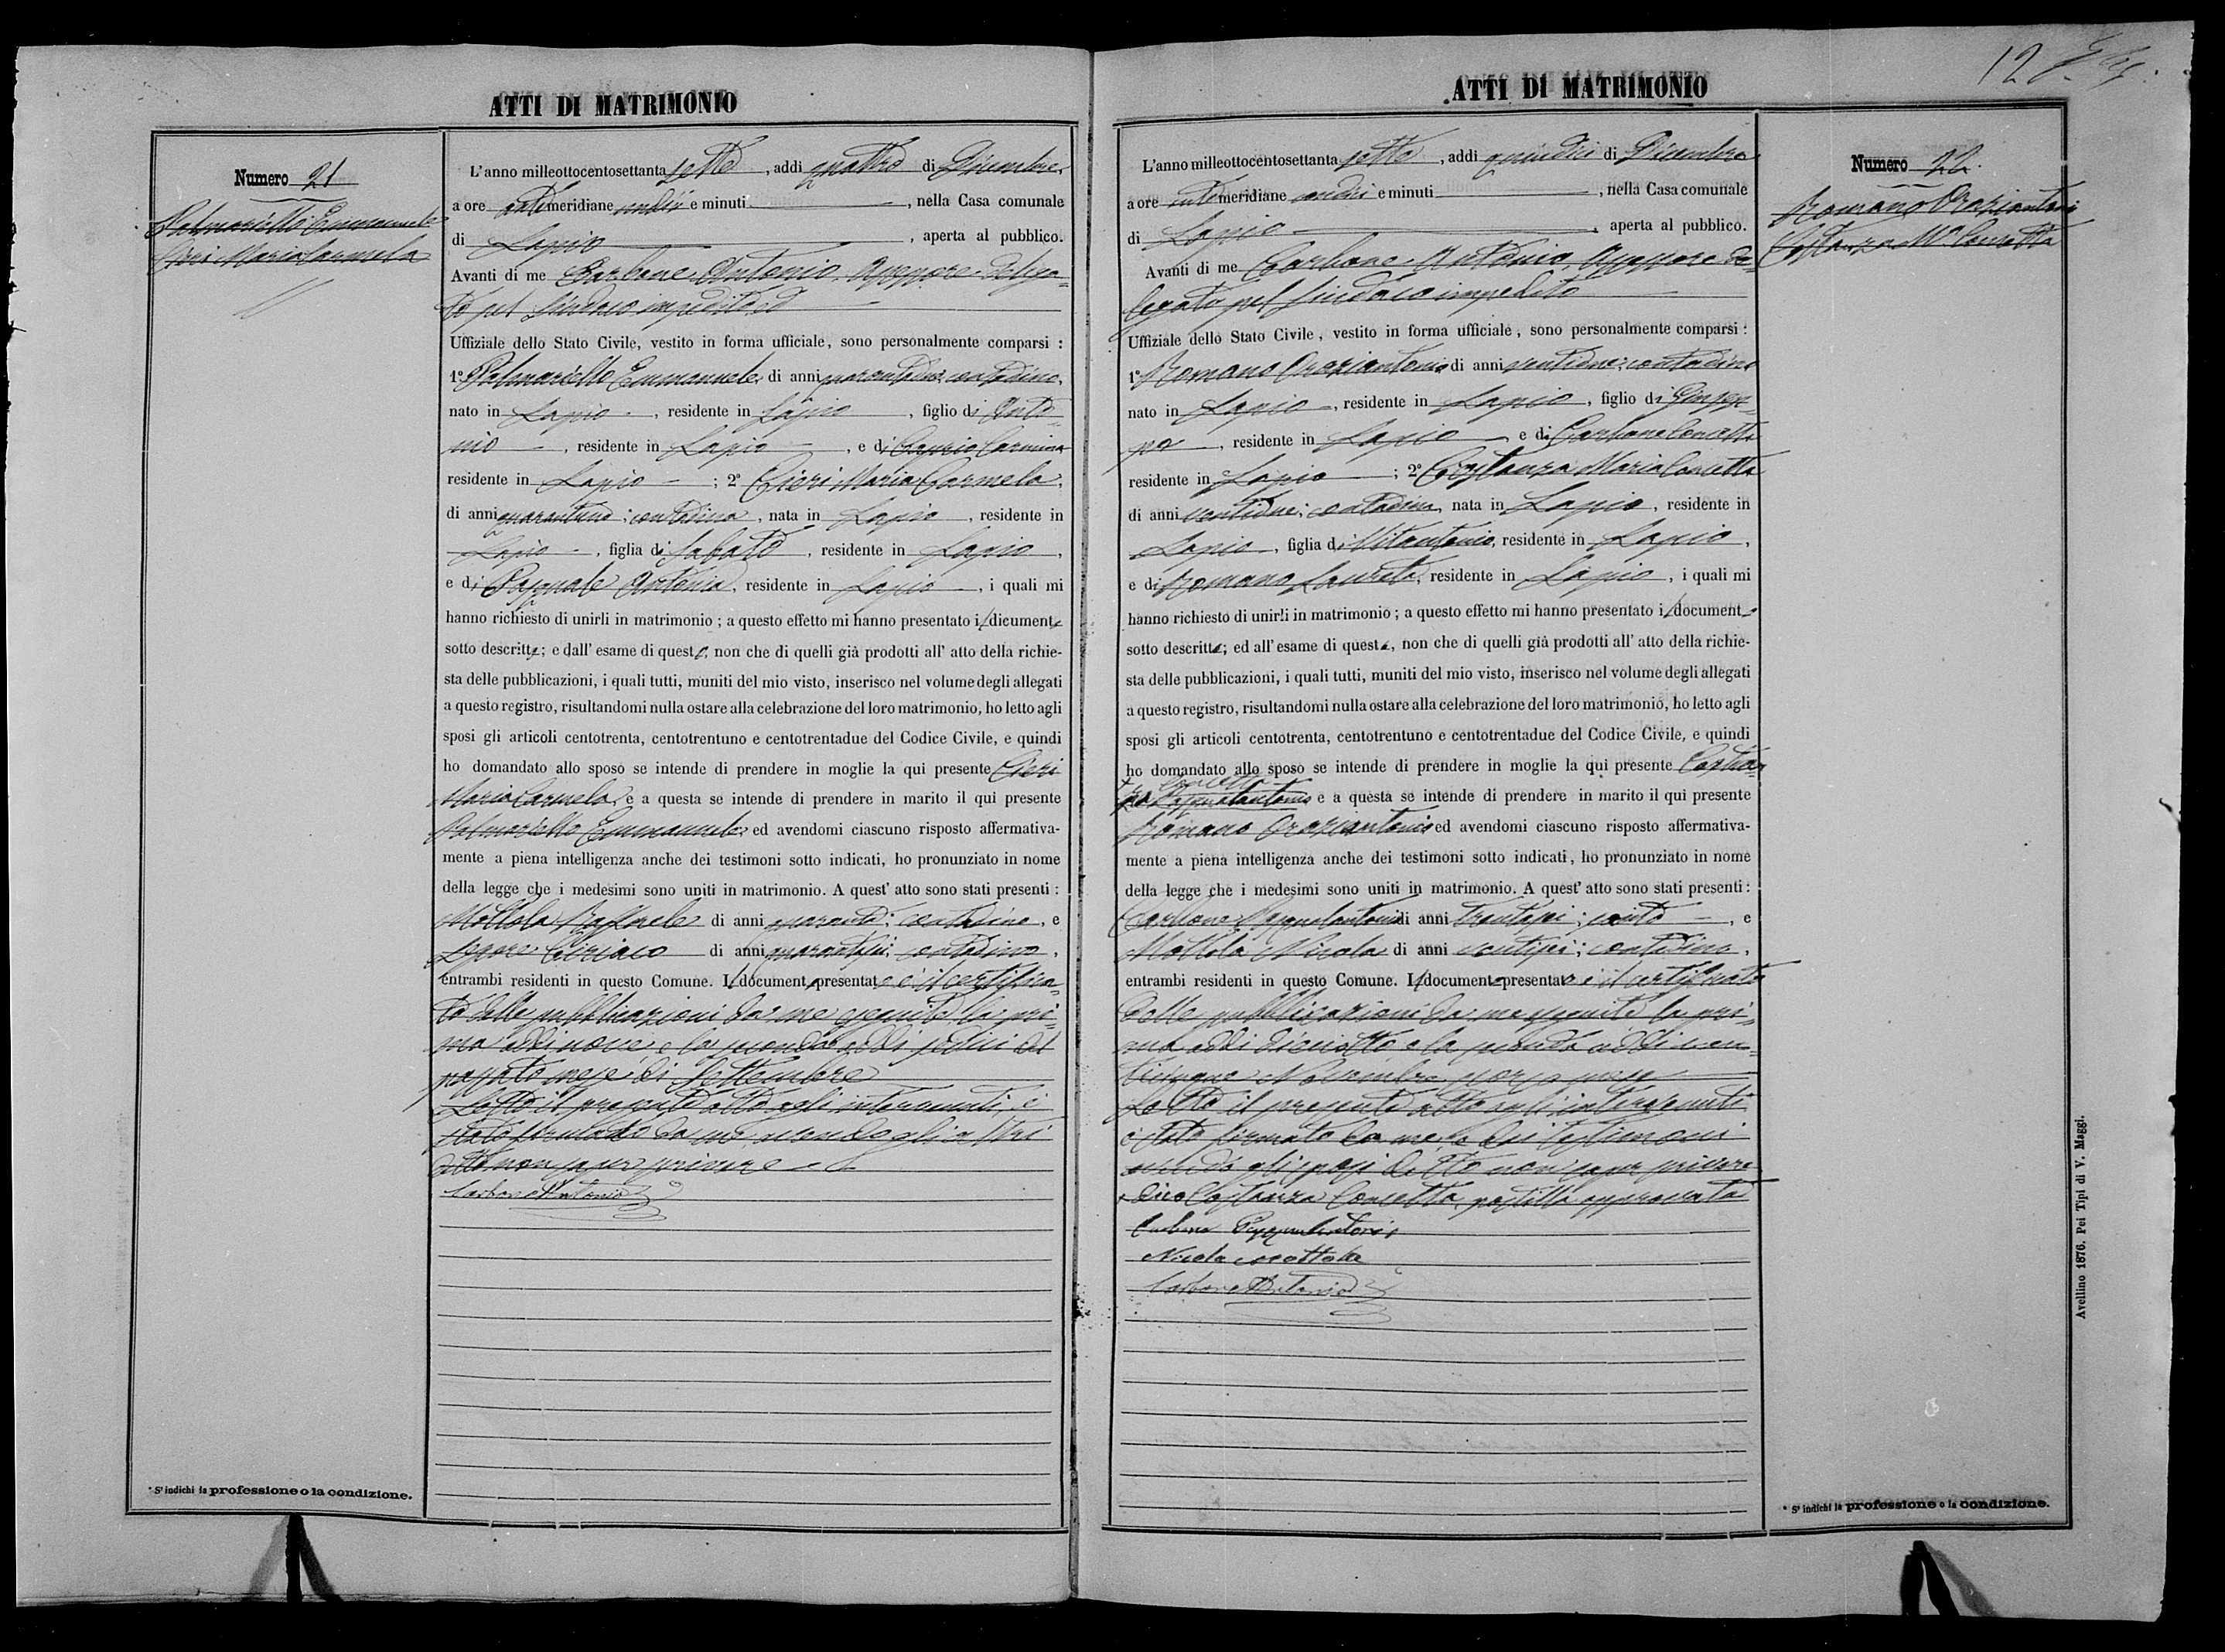 ATTI DI MATRIMONIO
Numero 21
Palmariello Emmanuele
Cieri Maria Carmela
L'anno milleottocentosettanta sette, addì quattro di Dicembre,
a ore antimeridiane undici e minuti, nella Casa comunale
di Lapio, aperta al pubblico.
Avanti di me Carbone Antonio, Assessore delega-
to pel Sindaco impedito
Uffiziale dello Stato Civile, vestito in forma ufficiale, sono personalmente comparsi :
1º Palmariello Emmanuele, di anni quarantadue; contadino,
nato in Lapio, residente in Lapio, figlio di Anto-
nio, residente in Lapio, e di Carmina
residente in Lapio ; 2º Cieri Maria Carmela,
di anni quarantuno; contadina, nata in Lapio, residente in
Lapio, figlia di Sabato, residente in Lapio,
e di Pasquale Antonia, residente in Lapio, i quali mi
hanno richiesto di unirli in matrimonio ; a questo effetto mi hanno presentato il dicumento
sotto descritto; e dall' esame di questo, non che di quelli già prodotti all' atto della richie-
sta delle pubblicazioni, i quali tutti, muniti del mio visto, inserisco nel volume degli allegati
a questo registro, risultandomi nulla ostare alla celebrazione del loro matrimonio, ho letto agli
sposi gli articoli centotrenta, centotrentuno e centotrentadue del Codice Civile, e quindi
ho domandato allo sposo se intende di prendere in moglie la qui presente Cieri
Maria Carmela, e a questa se intende di prendere in marito il qui presente
Palmariello Emmanuele, ed avendomi ciascuno risposto affermativa-
mente a piena intelligenza anche dei testimoni sotto indicati, ho pronunziato in nome
della legge che i medesimi sono uniti in matrimonio. A quest' atto sono stati presenti :
Mottola Raffaele di anni quaranta; contadino, e
Lepore Ciriaco di anni quarantasei; contadino,
entrambi residenti in questo Comune. Il documento presentato è il certifica-
to delle pubblicazioni da me eseguite, la pri-
ma addì nove e la seconda addì sedici del
passato mese di Settembre
Letto il presente atto agli intervenuti, è
stato firmato da me avendo gli altri
detto non saper scrivere
Carbone Antonio
* S' indichi la professione o la condizione.
ATTI DI MATRIMONIO
12
Numero 22.
Romano Oraziantonio
Costanza Mª Concetta
L'anno milleottocentosettanta sette, addì quindici di Dicembre
a ore antimeridiane undici e minuti, nella Casa comunale
di Lapio, aperta al pubblico.
Avanti di me Carbone Antonio, Assessore de-
legato pel Sindaco impedito
Uffiziale dello Stato Civile, vestito in forma ufficiale, sono personalmente comparsi :
1º Romano Oraziantonio di anni ventidue; contadino
nato in Lapio, residente in Lapio, figlio di Giusep-
pe, residente in Lapio e di Carbone Concetta
residente in Lapio ; 2º Costanza Maria Concetta
di anni ventidue; contadina, nata in Lapio, residente in
Lapio, figlia di Vitantonio, residente in Lapio,
e di Romano Laureta, residente in Lapio, i quali mi
hanno richiesto di unirli in matrimonio ; a questo effetto mi hanno presentato il documento
sotto descritto; ed all' esame di questo, non che di quelli già prodotti all' atto della richie-
sta delle pubblicazioni, i quali tutti, muniti del mio visto, inserisco nel volume degli allegati
a questo registro, risultandomi nulla ostare alla celebrazione del loro matrimonio, ho letto agli
sposi gli articoli centotrenta, centotrentuno e centotrentadue del Codice Civile, e quindi
ho domandato allo sposo se intende di prendere in moglie la qui presente Costan-
Concetta
za Pasqualantonio e a questa se intende di prendere in marito il qui presente
Romano Oraziantonio ed avendomi ciascuno risposto affermativa-
mente a piena intelligenza anche dei testimoni sotto indicati, ho pronunziato in nome
della legge che i medesimi sono uniti in matrimonio. A quest' atto sono stati presenti :
Carbone Pasqualantonio di anni trentasei; sarto, e
Mottola Nicola di anni ventisei; contadino,
entrambi residenti in questo Comune. Il documento presentato è il certificato
delle pubblicazioni da me eseguite la pri-
ma addì diciotto e la seconda addì ven-
ticinque Novembre scorso mese
Letto il presente atto agli intervenuti
è stato firmato da me, e dai testimoni
avendo gli sposi detto non saper scrivere
Dico Costanza Concetta postilla approvata
Carbone Pasqualantonio
Nicola Mottola
Carbone Antonio
* S' indichi la professione o la condizione.
Avellino 1876. Pei Tipi di V. Maggi.